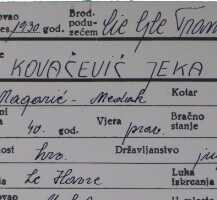 ovao Brod.
es 1930 god. podu-
zećem Cie Gle Tran
KOVAČEVIĆ JEKA
Magović - Kotar
40. god. Vjera prav. Bračno
stanje
ost hrv. Državljanstvo ju
Le Havre Luka
iskrcanja